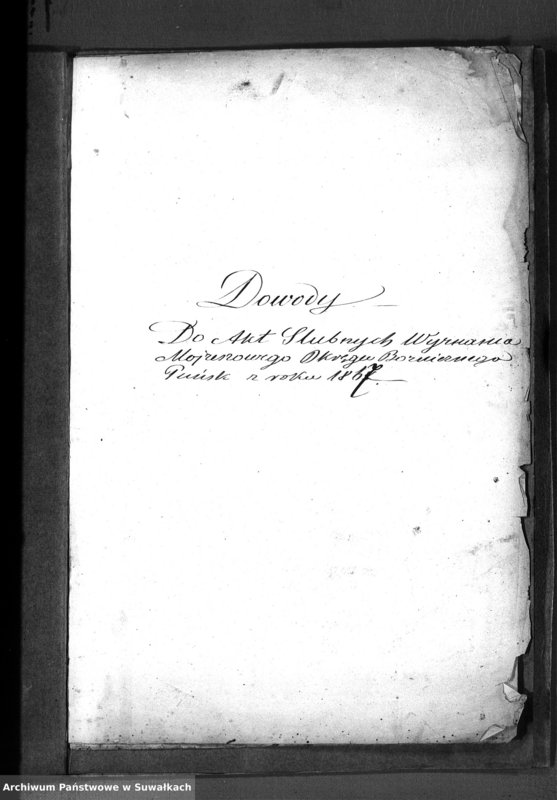 Dowody
Do Akt Slubnych Wyznania
Mojżeszowego Okręgu Bożniczego
Puńsk z roku 1867.
Archiwum Państwowe w Suwałkach